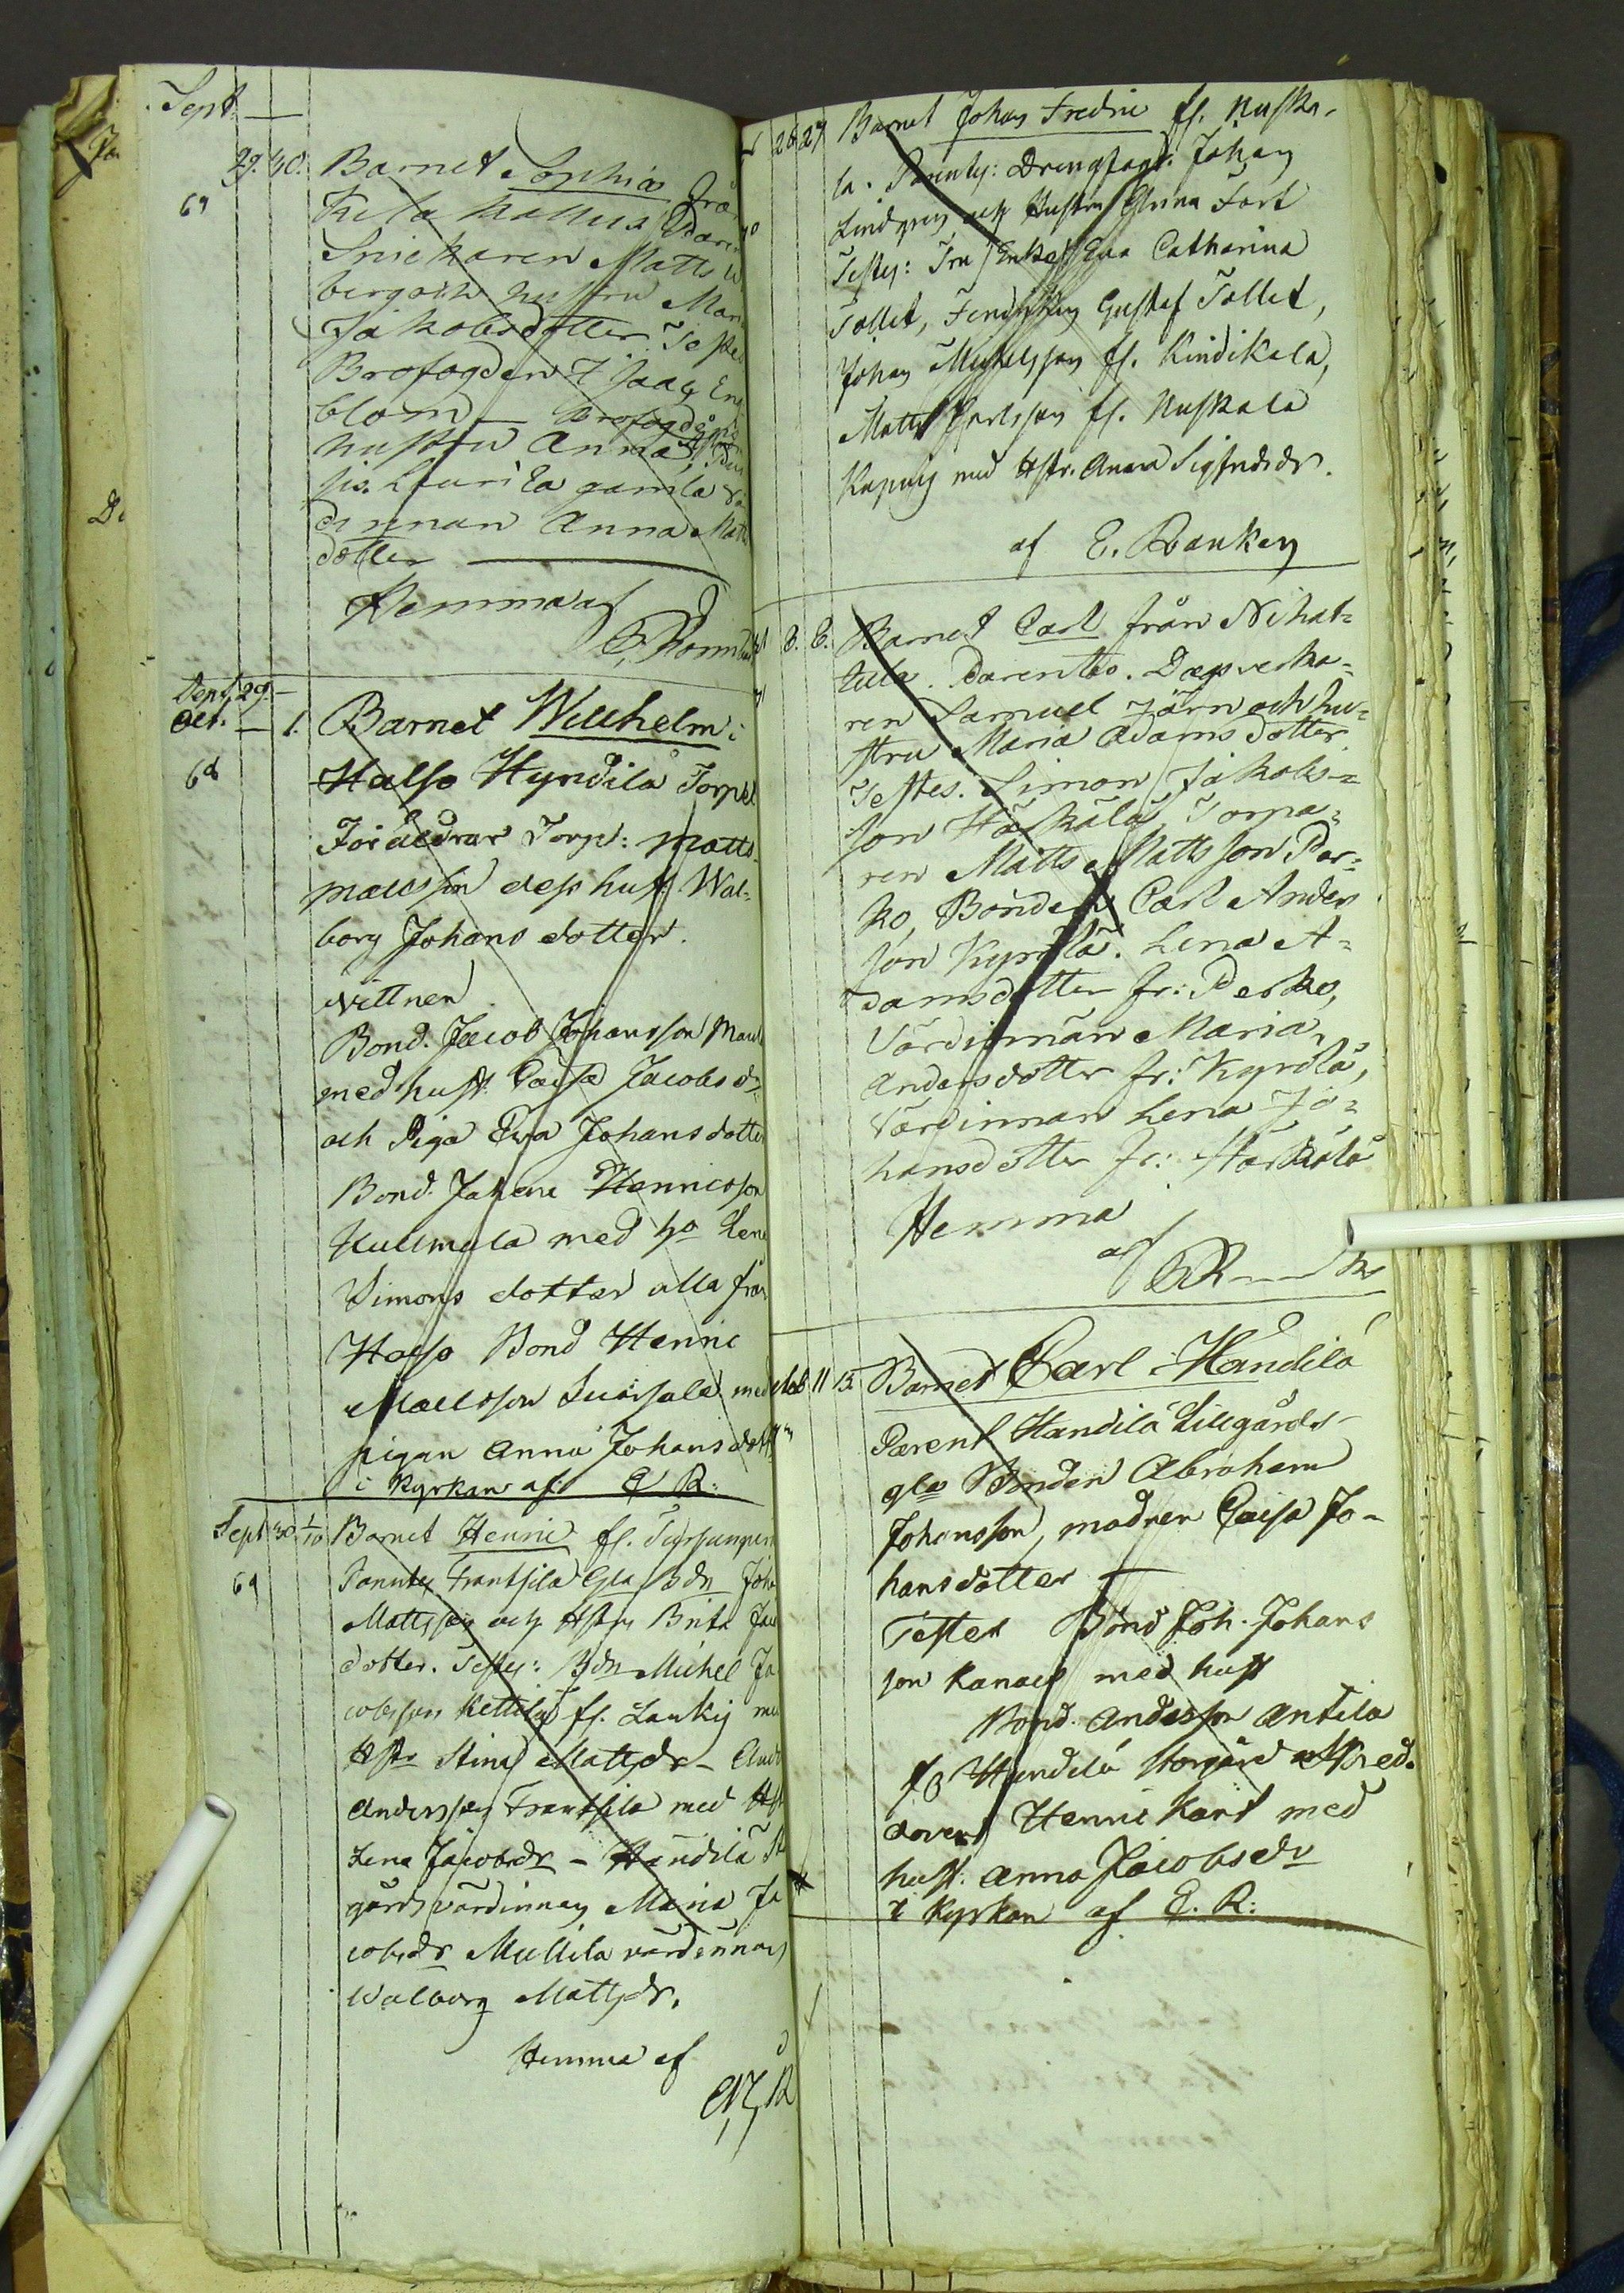 Sept. —
29. 30. Barnet Sophia från
69 Kallus Paren
Snickaren Matts W
berg och hustru Mari
Jakobsdotter. Testes
Brofogden Isaac En
blom — Brofogde
hustru Anna
Laurila gamla Vär
dinnan Anna Matts
dotter
Hemma af
Sept. 29. —
Oct. — 1. Barnet Willhelm i
68 Halso Hyndilä Torpet
Föräldrar Torp: Matts
Mattsson dess hust. Wal-
borg Johans dotter.
Vittnen
Bond. Jacob Johansson
med hust. Caisa Jacobs dr
och Piga Eva Johans dotter
Bond. Johan Henricsson
Kullmala med ho Lena
Simons dotter alla från
Halso Bond Henric
Mattsson med
pigan Anna Johans dotter
i Kyrkan af E R:
Sept 30 1/10 Barnet Henric fr.
69 Parentes Frantsila Gla Bdn Joha
Mattsson och Hstru Brita Jac
dotter. Testes: Bdn Michel Ja
cobsson Kettilä fr. Lanki med
Hstr Stina Mattsdr — And
Andersson Frantsila med Hst
Lena Jacobsdr — Händilä St
gårds värdinnan Maria Ja
cobsdr Mullila värdinnan
Walborg Mattsdr.
Hemma af
R
26 27 Barnet Johan Fredric fr. Nuska-
la. Parentes: Drengfogd. Johan
Lindgren och Hustru Elvina Fort
Testes: Fru Enkef. Eva Catharina
Tollet, Fendriken Gustaf Tollet,
Johan Michelsson fr. Kindikala,
Matts Carlsson fr. Nuskala
Kapuig med Hstr. Anna Sigfridsdr.
af E. Ranken
8. 8. Barnet Carl från Nihat-
tula. Parentes. Dagsverka-
ren Samuel Järn och hu-
stru Maria Adams dotter
Testes. Simon Jakobs-
son Härkälä, Torpa-
ren Matts Mattsson Per-
ko, Bonden Carl Anders
son Kyrölä. Lena A-
damsdotter fr: Perko,
Värdinnan Maria
Andersdotter fr: Kyrölä,
Värdinnan Lena Jo-
hansdotter fr: Härkälä
Hemma
af
11 13. Barnet Carl i Händilä
Parent Händilä Lillgårds-
gla Bonden Abraham
Johansson, modren Caisa Jo-
hansdotter —
Testes Bond Joh. Johans
son Kanaas med hust
Bond. Andersson Antila
fr Händilä Storgård
Henric Kart med
hust: Anna Jacobsdr
i Kyrkan af E. R: